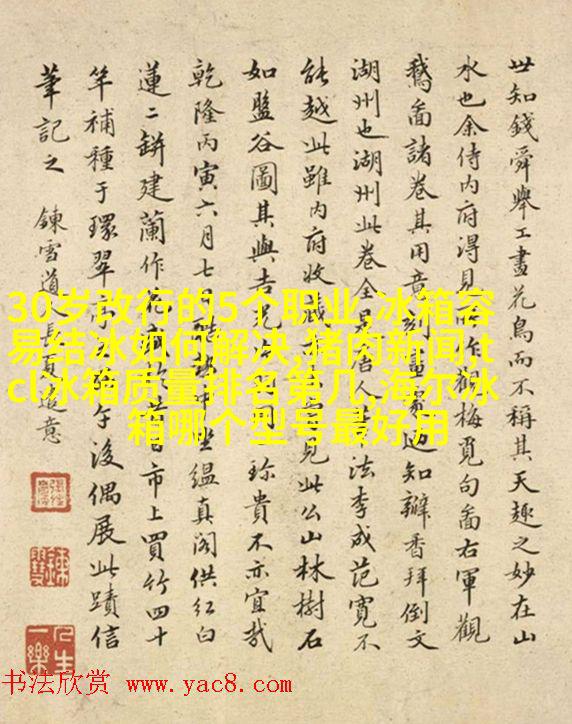 世知錢舜舉工畫花鳥而不稱其天趣之妙在山
水也余侍内府得見觀梅覓句畵右軍觀
鵝畵諸卷其用意刻畫知瓣香拜倒文
湖州也湖州此卷全是人法李成范寬不
能越此雖内府收見此公山林樹石
如盤谷圖其與吉光珍貴不亦宜哉
乾隆丙寅六月七坐緼真阁供紅白
蓮二缾建蘭作市上買竹四十
竿補種于環翠午後偶展此蹟信
筆記之 鍊雪道人長夏遣意
30岁改行的5个职业,冰箱容
易结冰如何解决,猪肉新闻,t
cl冰箱质量排名第几,海尔冰
箱哪个型号最好用
人生一樂
书法欣赏 www.yac8.com